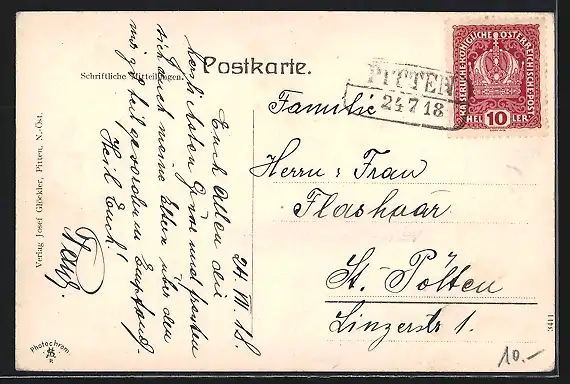 Postkarte.
Schriftliche Mitteilungen.
24. VII. 18.
Euch Allen die
herzlichsten Grüße und freuten
sich auch meine Eltern über den
mir zu teil gewordenen Empfang.
Heil Euch!
Franz.
Familie
Herrn u. Frau
Flashaar
St. Pölten
Linzerstr 1.
PITTEN
24 7 18
KAISERLICHE KÖNIGLICHE ÖSTERREICHISCHE POST
HEL 10 LER
Verlag Josef Glöckler, Pitten, N.-Öst.
Photochrom.
3411
10.-